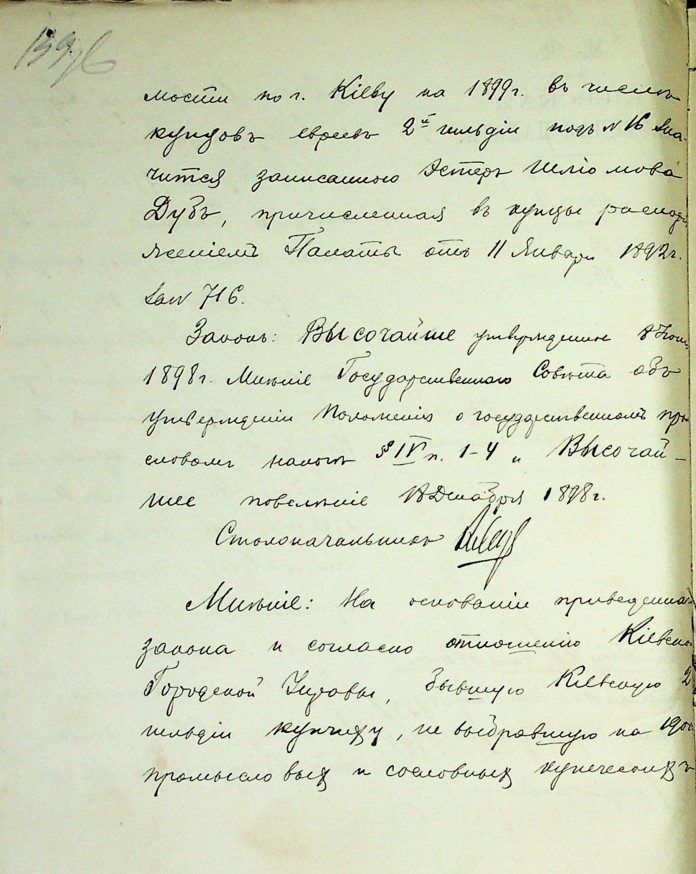 мости по г. Кіеву на 1899 г. въ числѣ
купцовъ евреевъ 2й гильдіи подъ № 16 зна-
чится записанною Эстеръ Шліомова
Дубъ, причисленная въ купцы распоря
женіемъ Палаты отъ 11 Января 1892 г.
за № 716.
Законъ: Высочайше утвержденное 8 Іюня
1898 г. Мнѣніе Государственнаго Совѣта объ
утвержденіи Положенія о государственномъ про
словомъ налогѣ § IV п. 1-4 и Высочай-
шее повелѣніе Декабря 1898 г.
Столоначальникъ
Мнѣніе: На основаніи приведенна
закона и согласно отношенію Кіевско
Городской Управы, бывшую Кіевскую 2
гильдіи купчиху, не выбравшую на 1900
промысловыхъ и сословныхъ купеческихъ